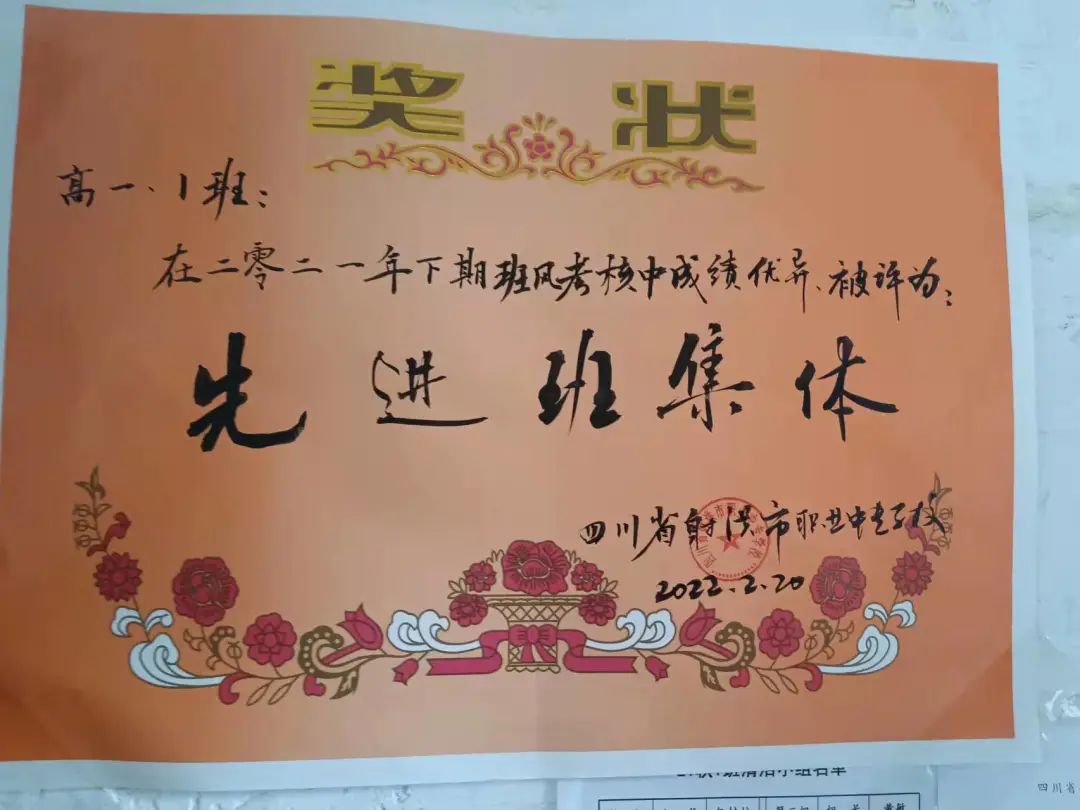 奖状
高一.1班：
在二零二一年下期班风考核中成绩优异、被评为：
先进班集体
四川省射洪市职业中专学校
2022.2.20
班清洁小组名单
四川省